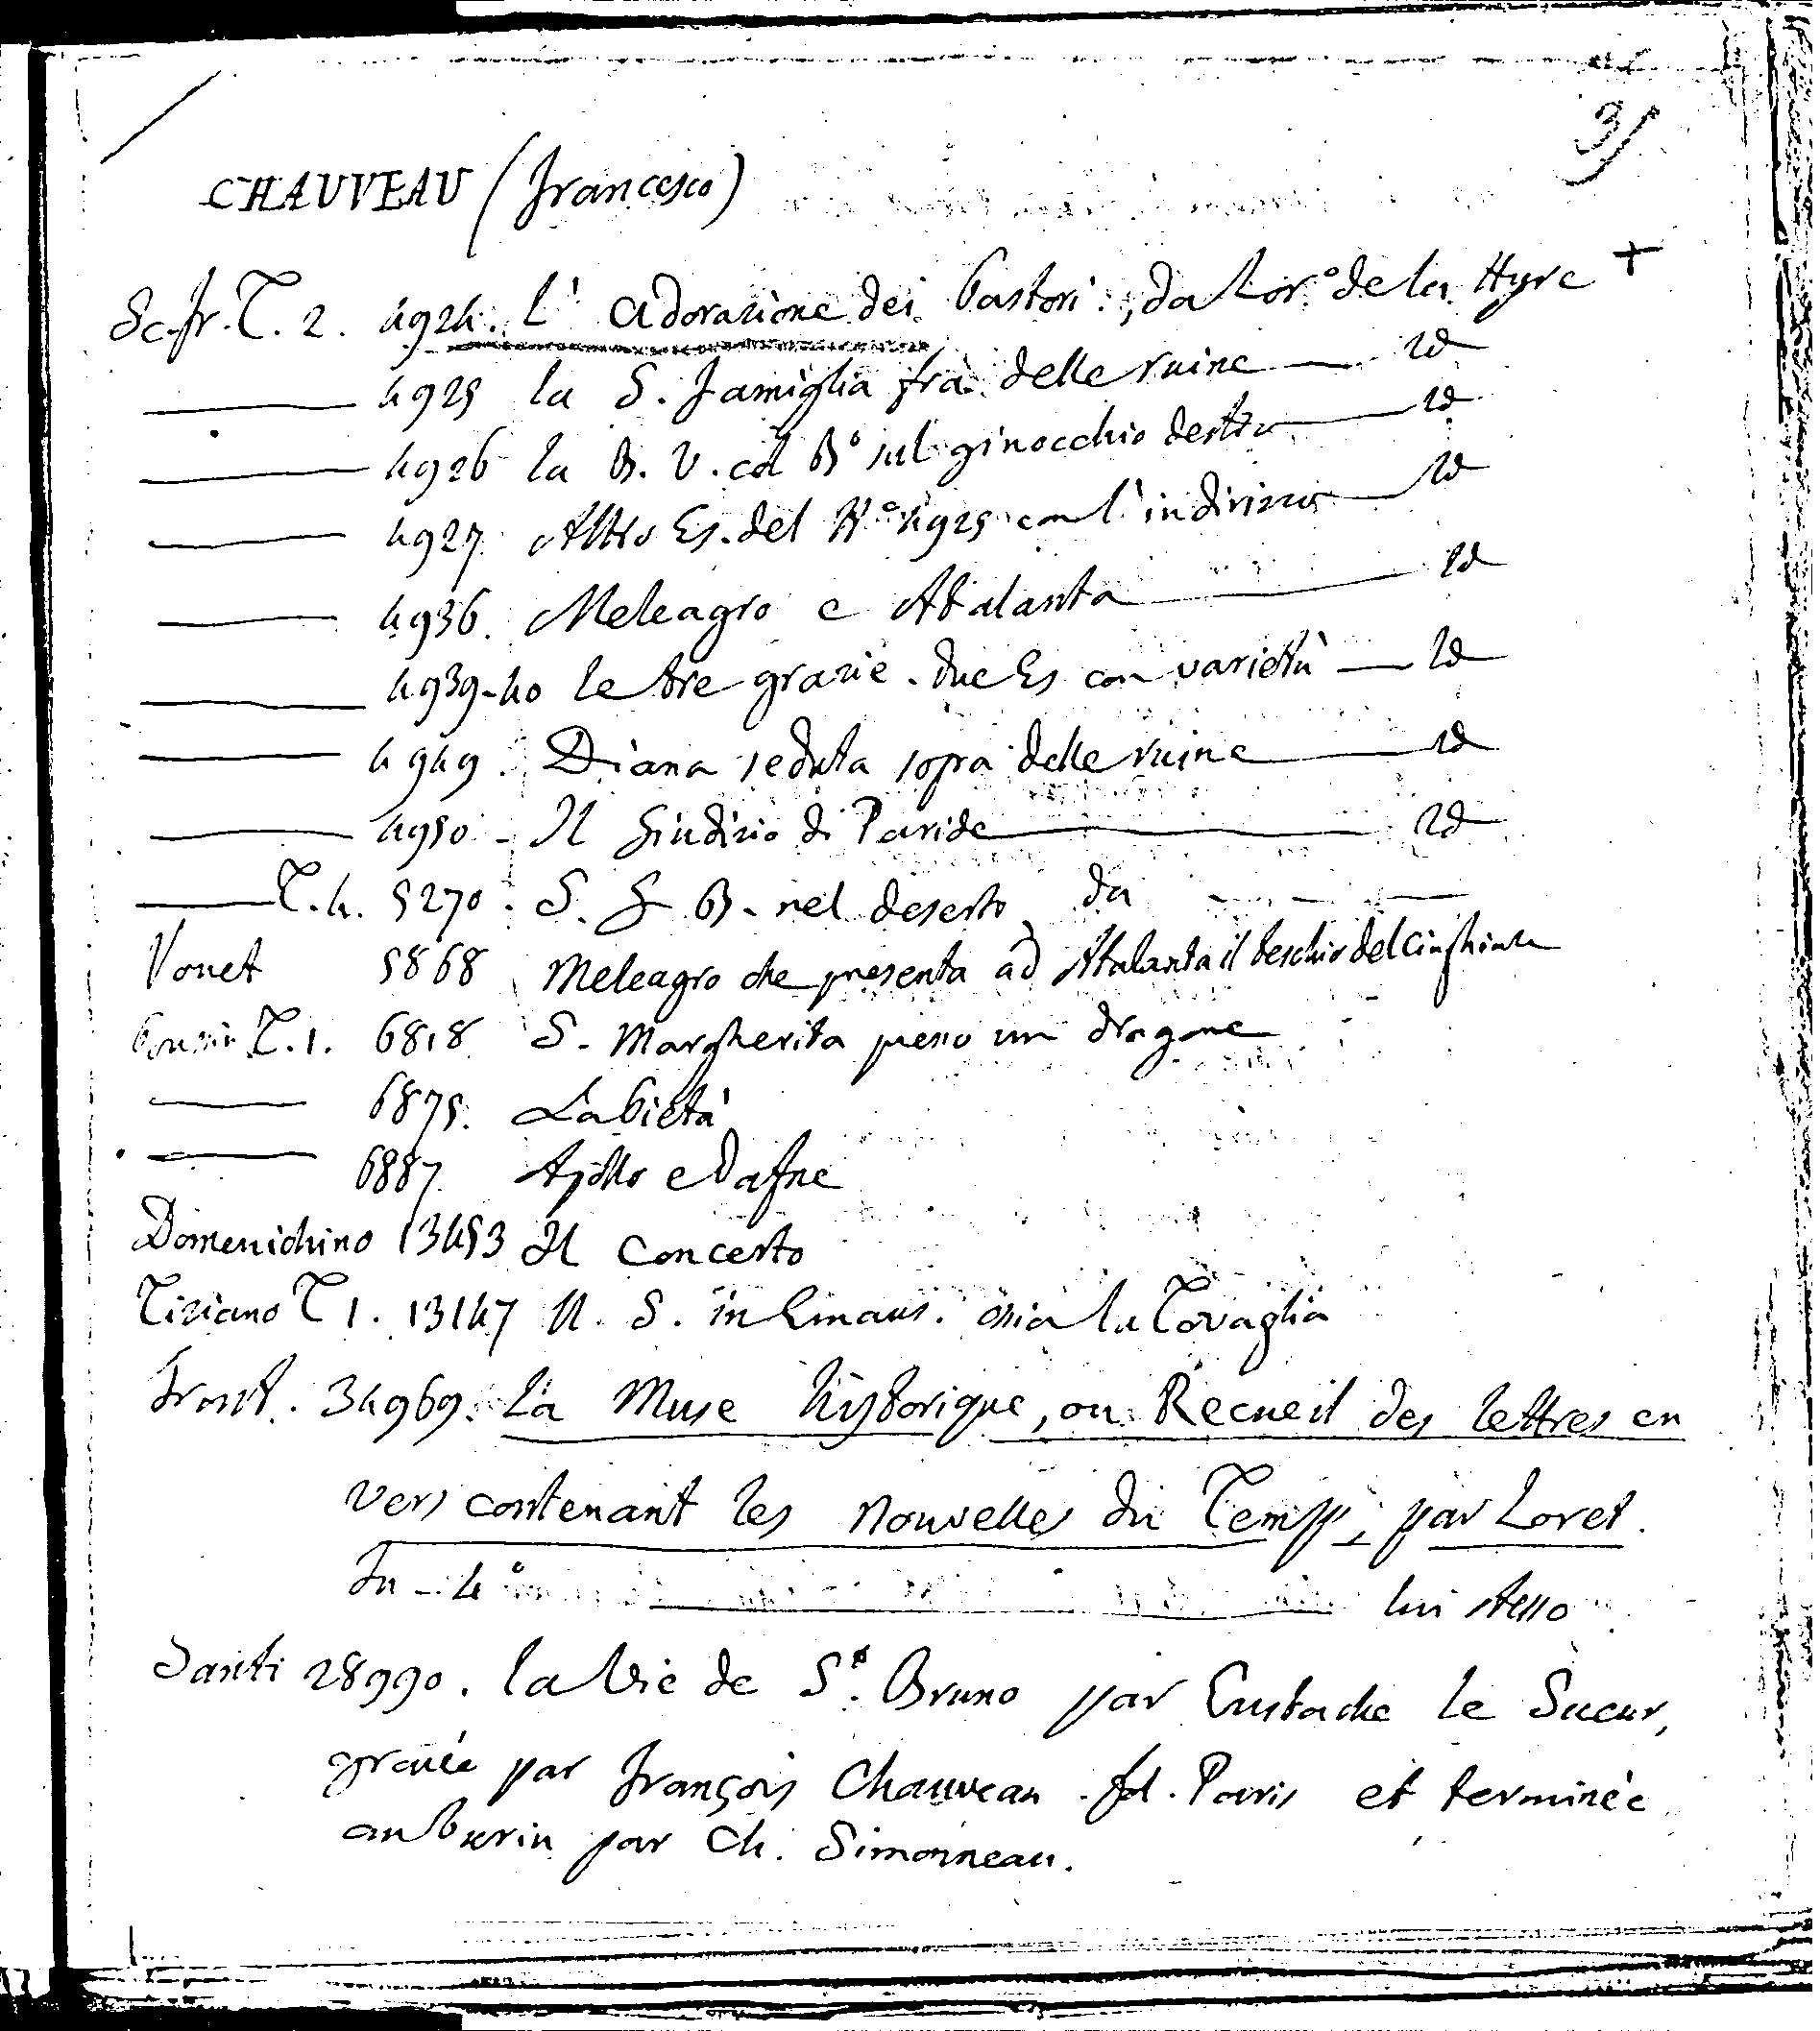 31
CHAUVEAU (Francesco)
Sc. fr. T. 2. 4924. L' Adorazione dei Pastori, da Lor.º de la Hyre +
4925 la S. famiglia frà delle ruine — id
4926 la B. V. col Bº sul ginocchio destro — id
4927 Altro Es. del Nº 4925 con l' indirizzo — id
4936. Meleagro e Atalanta — id
4939-40 le tre grazie. due Es con varietà — id
4949. Diana seduta sopra delle ruine — id
4950 - Il Giudizio di Paride — id
— T. 4. 5270. S. G B. nel deserto da — — —
Vouet 5868 Meleagro che presenta ad Atalanta il teschio del Cinghiale
Poussin T. 1. 6818 S. Margherita presso un dragone
6875. La Pietà
6887 Apollo e Dafne
Domenichino 13453 Il Concerto
Tiziano T 1. 13147 N. S. in Emaus. ossia la Tovaglia
Front. 34969. La Muse historique, ou Recueil des lettres en
vers contenant les nouvelles du Temps, par Loret.
In - 4º — lui stesso
Santi 28990. la Vie de Sᵗ. Bruno par Eustache le Sueur,
gravée par François Chauveau. fol. Paris et terminée
au burin par Ch. Simonneau.